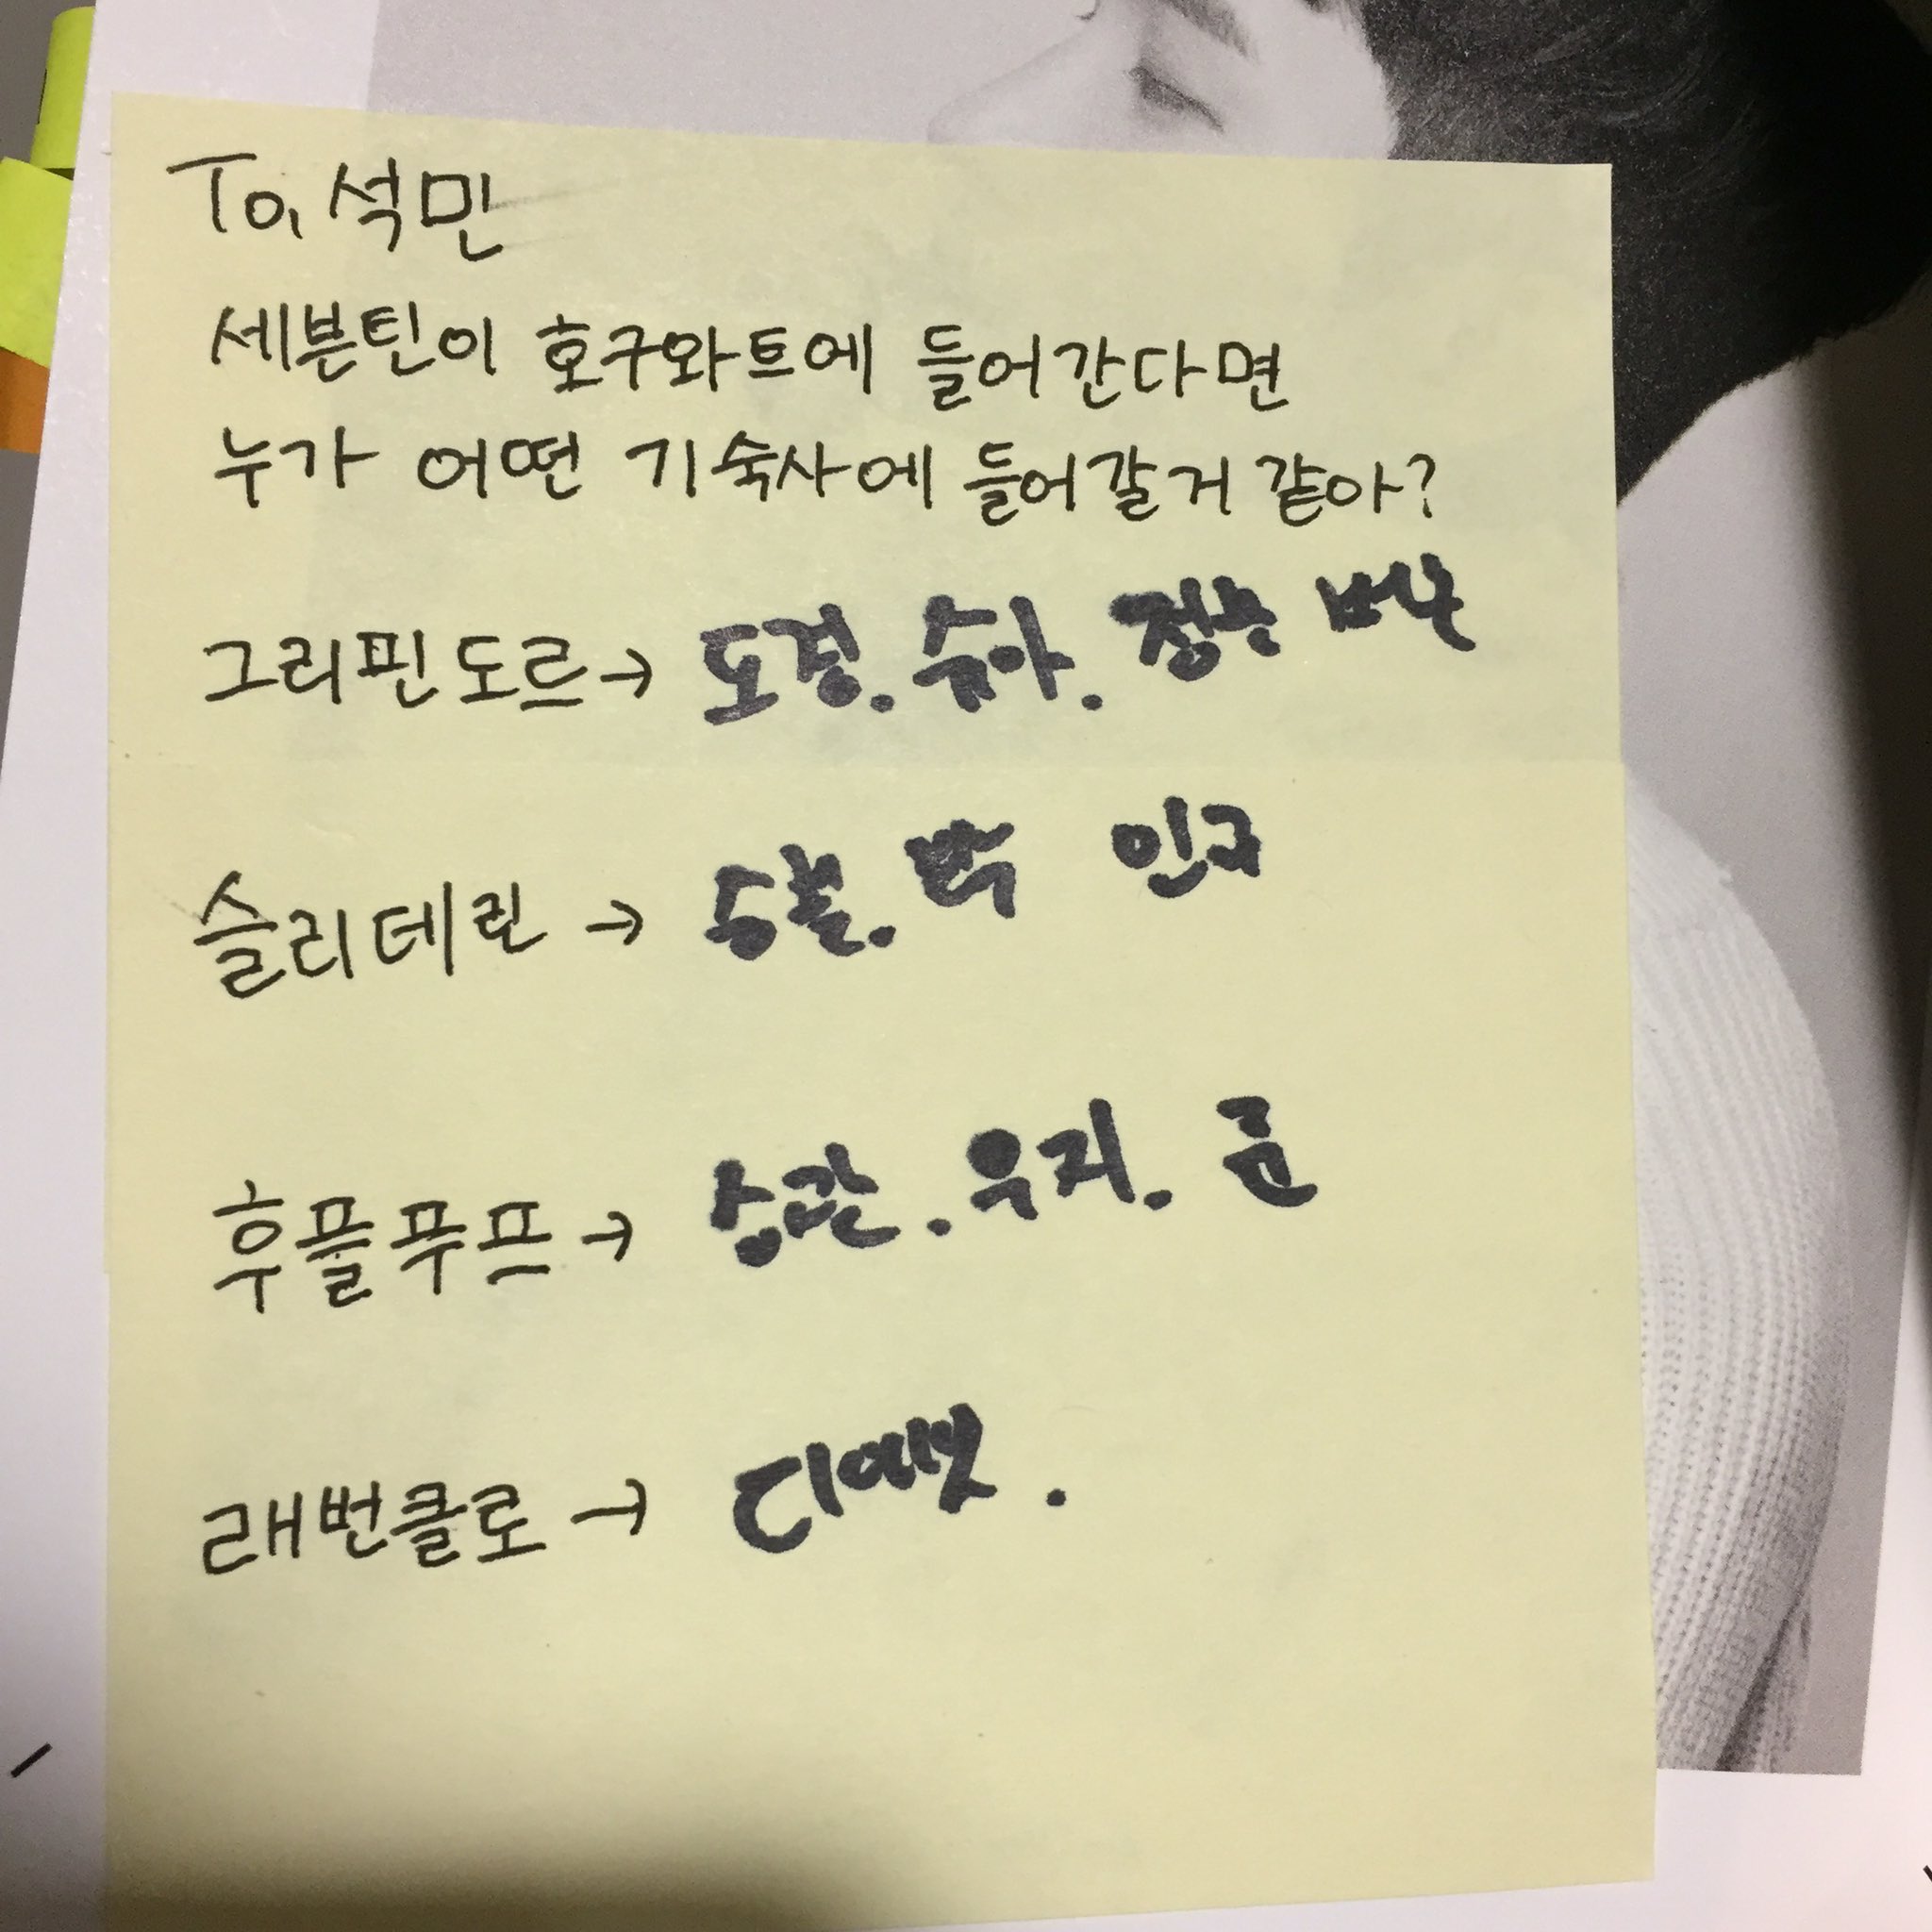 To, 석민
세븐틴이 호구와트에 들어간다면
누가 어떤 기숙사에 들어갈거 같아?
그리핀도르→ 도겸. 슈아. 정한 버논
슬리데린 → 승철. 인규
후플푸프→ 승관. 우지.
래번클로→ 디에잇.